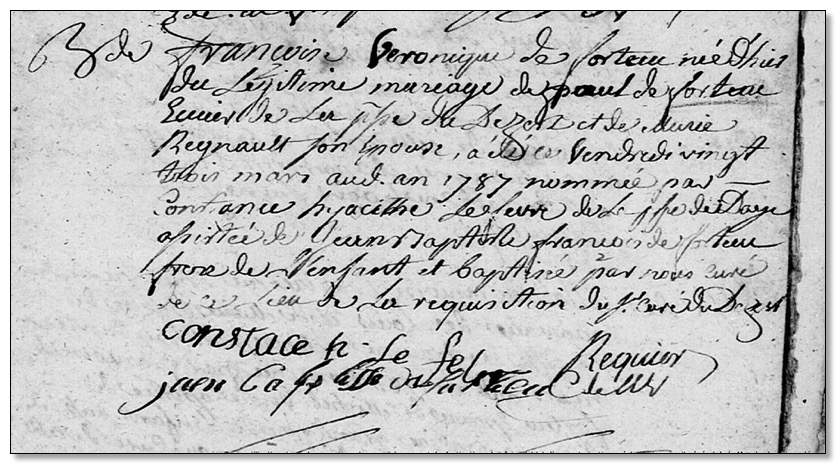 B de françoise Veronique de forteau née d'hier
du Légitime mariage de paul de forteau
Ecuier de La psse du Dezert et de Marie
Regnault son Epouse, a été ce Vendredi vingt
trois mars aud. an 1787 nommée par
Constance hyacithe Lefevre de psse de
assistée de jean Baptiste francois de forteau
frere de L'enfant et baptisée par nous curé
de ce Lieu de La requisition du sr. curé du Dezert
constace h. le febv Requier
jaen Ba de forteau